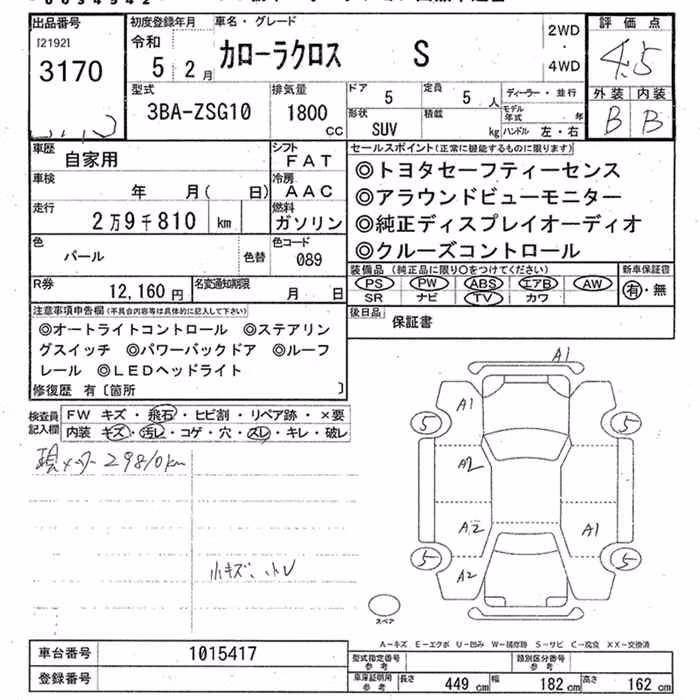 出品番号
[2192]
3170
初度登録年月
令和
5 2月
車名・グレード
カローラクロス S
2WD
・
4WD
評価点
4.5
外装 内装
B B
型式
3BA-ZSG10
排気量
1800
CC
ドア
5
定員
5 人
形状
SUV
積載
kg
ディーラー・並行
モデル年式 年
ハンドル 左・右
車歴
自家用
シフト
FAT
車検
年 月( 日)
冷房
AAC
走行
2万9千810 km
燃料
ガソリン
色
パール
色替
色コード
089
R券
12,160円
名変通知期限
月 日
セールスポイント(正常に機能するものに限ります)
◎トヨタセーフティーセンス
◎アラウンドビューモニター
◎純正ディスプレイオーディオ
◎クルーズコントロール
装備品(純正品に限り○をつけてください)
PS PW ABS エアB AW
SR ナビ TV カワ
新車保証書
有・無
後日品
保証書
注意事項申告欄(不具合内容等は具体的に記入して下さい)
◎オートライトコントロール ◎ステアリン
グスイッチ ◎パワーバックドア ◎ルーフ
レール ◎LEDヘッドライト
修復歴 有〔箇所 〕
検査員
記入欄
FW キズ・飛石・ヒビ割・リペア跡・×要
内装 キズ・汚レ・コゲ・穴・スレ・キレ・破レ
現メーター 29810km
小キズ、小U
A1
A1
5
5
A2
A2
A1
5
5
A2
スペア
A-キズ E-エクボ U-凹み W-補修跡 S-サビ C-腐食 XX-交換済
車台番号
1015417
登録番号
型式指定番号
参考
類別区分番号
参考
車庫証明用
参考
長さ 449 cm
幅 182 cm
高さ 162 cm